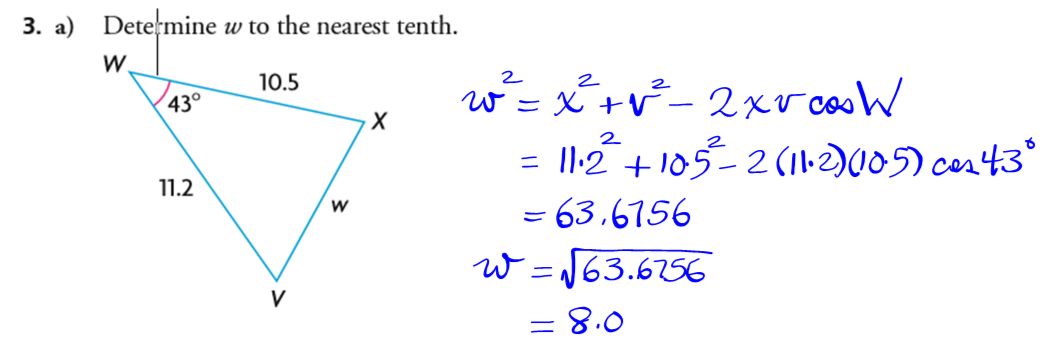 3. a) Determine w to the nearest tenth.
W
10.5
43°
X
11.2
w
V
w² = x² + v² - 2xv cos W
= 11.2² + 10.5² - 2(11.2)(10.5) cos 43°
= 63.6756
w = √63.6756
= 8.0